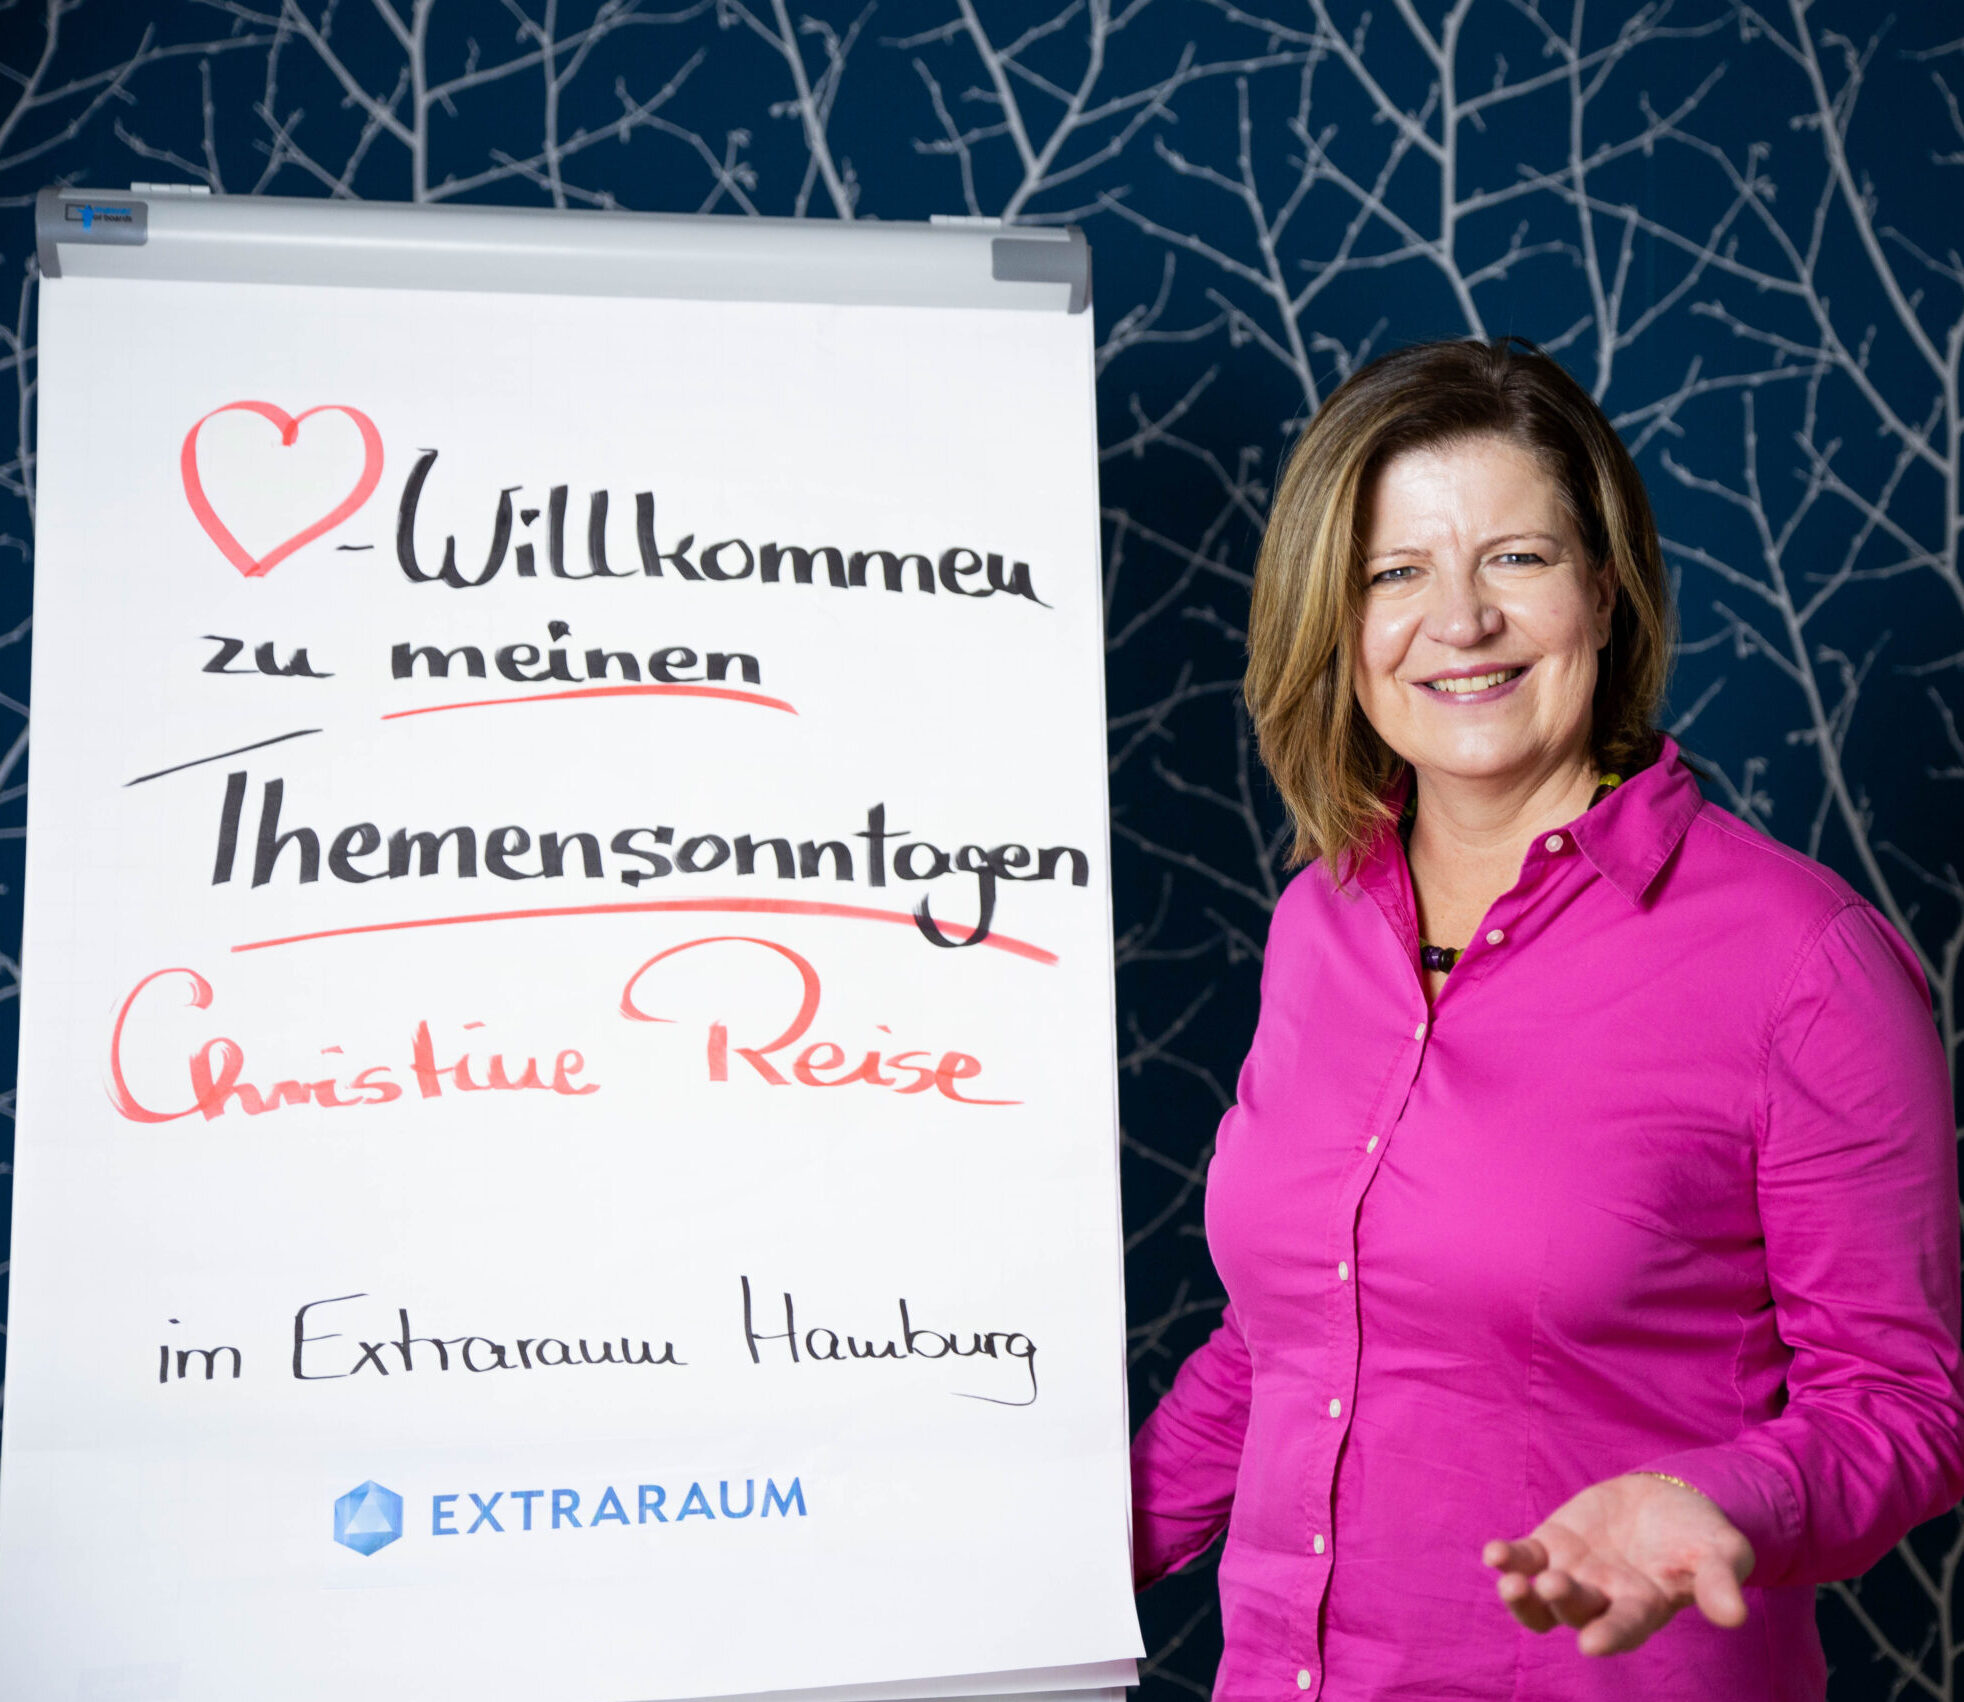 -Willkommen
zu meinen
Themensonntagen
Christine Reise
im Extraraum Hamburg
EXTRARAUM